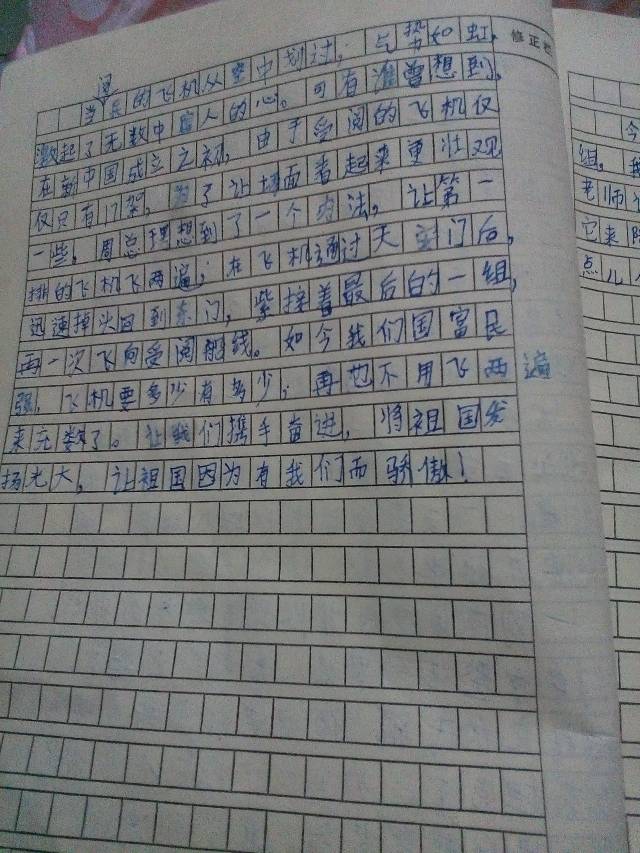 当我的飞机从空中划过，气势如虹，
激起了无数中国人的心。可有谁曾想到，
在新中国成立之初，由于受阅的飞机仅
仅只有17架，为了让场面看起来更壮观
一些，周总理想到了一个办法，让第一
排的飞机飞两遍；在飞机通过天安门后，
迅速掉头回到东门，紧接着最后的一组，
再一次飞向受阅航线。如今我们国富民
强，飞机要多少有多少，再也不用飞两遍
来充数了。让我们携手奋进，将祖国发
扬光大，让祖国因为有我们而骄傲！
修正栏
今
组，
老师
它来
点儿